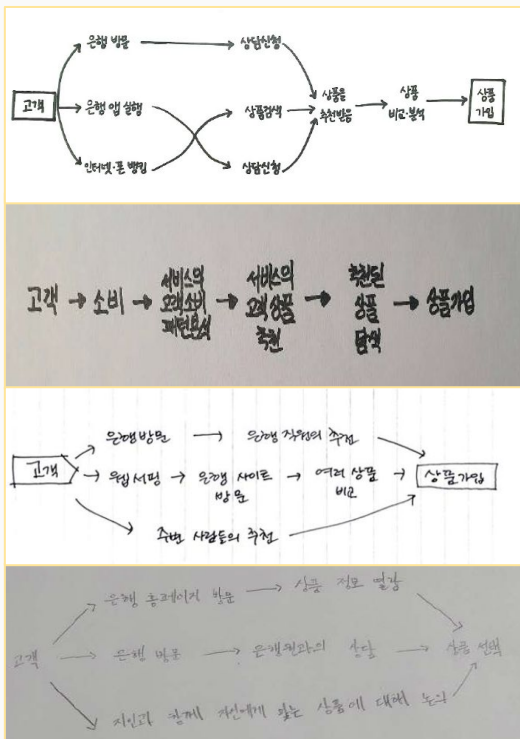 은행 방문 상담신청
고객 은행 앱 실행 상품검색 상품을 추천받음 상품 비교·분석 상품 가입
인터넷·폰 뱅킹 상담신청
고객 → 소비 → 서비스의 고객소비 패턴분석 → 서비스의 고객 상품 추천 → 추천된 상품 탐색 → 상품가입
은행방문 → 은행 직원의 추천
고객 → 웹서핑 → 은행 사이트 방문 → 여러 상품 비교 → 상품가입
주변 사람들의 추천
은행 홈페이지 방문 → 상품 정보 열람
고객 → 은행 방문 → 은행원과의 상담 → 상품 선택
지인과 함께 자인에게 맞는 상품에 대해 논의